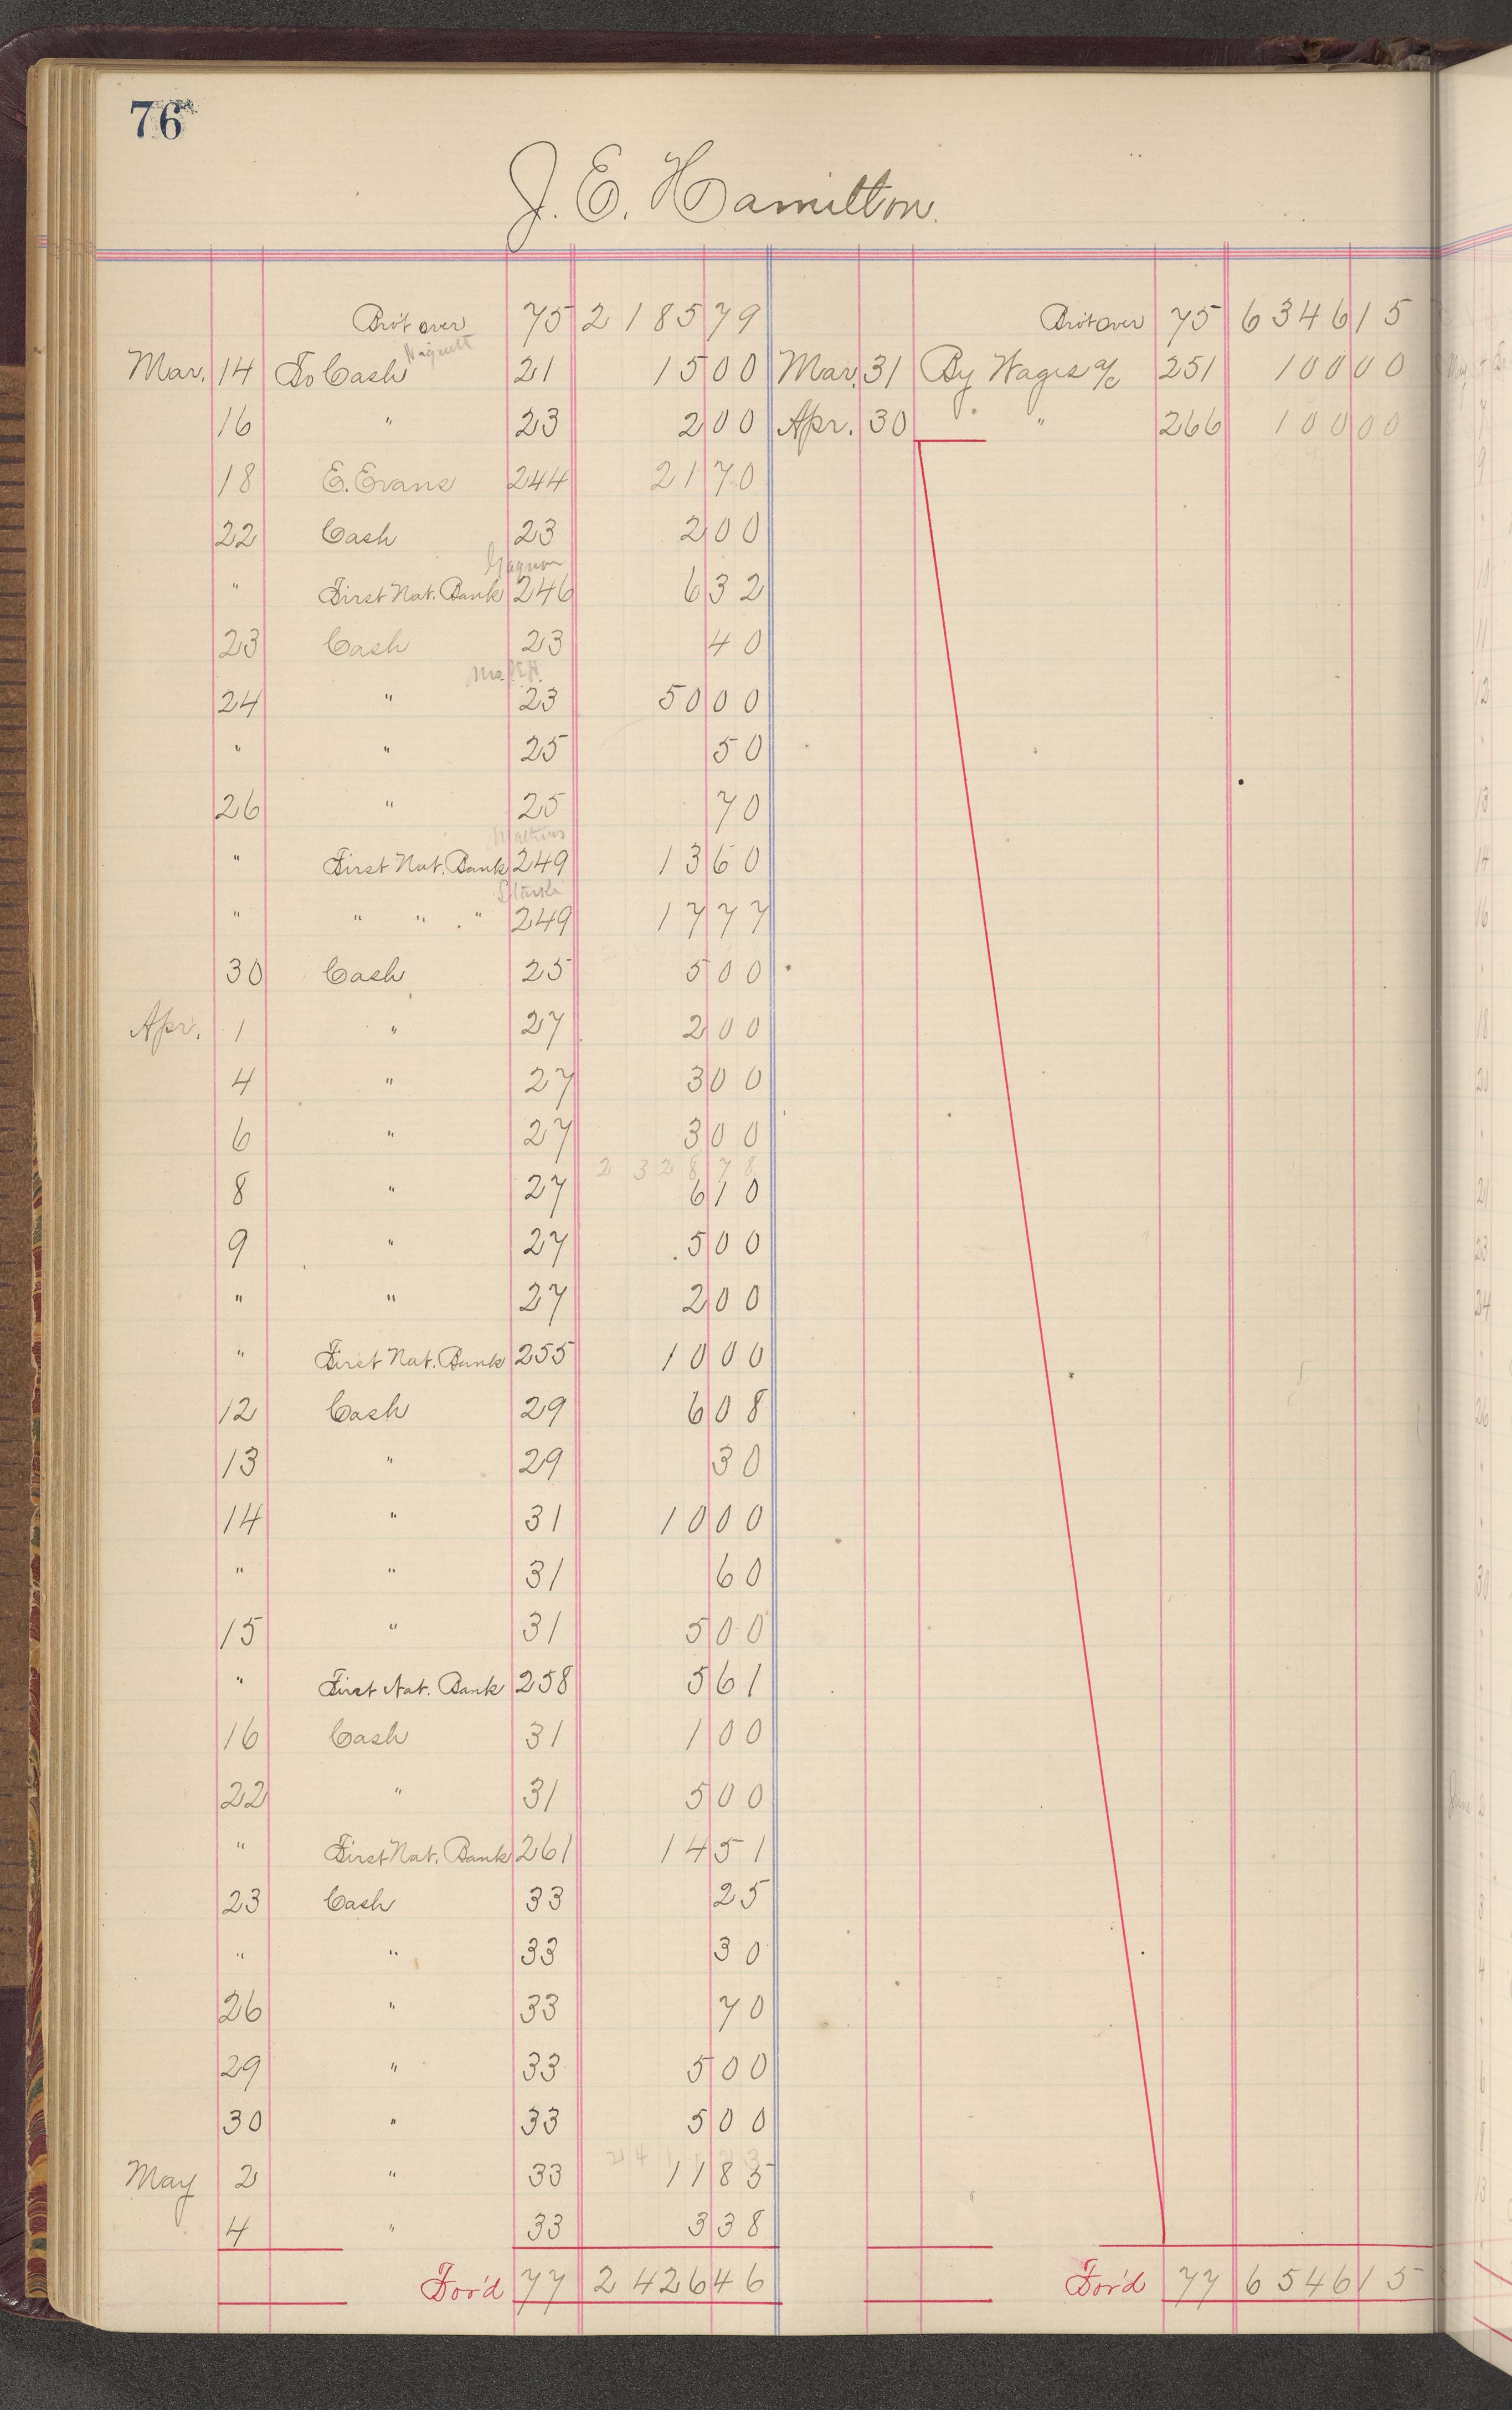 76
J. E. Hamilton.
Bro't over 75 2185 79 Bro't over 75 6346 15
Mar. 14 To Cash 21 15 00 Mar. 31 By Wages a/c 251 100 00
16 " 23 2 00 Apr. 30 " 266 100 00
18 E. Evans 244 21 70
22 Cash 23 2 00
Gagnon
" First Nat. Bank 246 6 32
23 Cash 23 40
Mrs. J.E.H.
24 " 23 50 00
" " 25 50
26 " 25 70
" First Nat. Bank 249 13 60
" " " " 249 17 77
30 Cash 25 5 00
Apr. 1 " 27 2 00
4 " 27 3 00
6 " 27 3 00
2328 78
8 " 27 6 10
9 " 27 5 00
" " 27 2 00
" First Nat. Bank 255 10 00
12 Cash 29 6 08
13 " 29 30
14 " 31 10 00
" " 31 60
15 " 31 5 00
" First Nat. Bank 258 5 61
16 Cash 31 1 00
22 " 31 5 00
" First Nat. Bank 261 14 51
23 Cash 33 25
" " 33 30
26 " 33 70
29 " 33 5 00
30 " 33 5 00
May 2 " 33 11 85
4 " 33 3 38
For'd 77 2426 46 For'd 77 6546 15